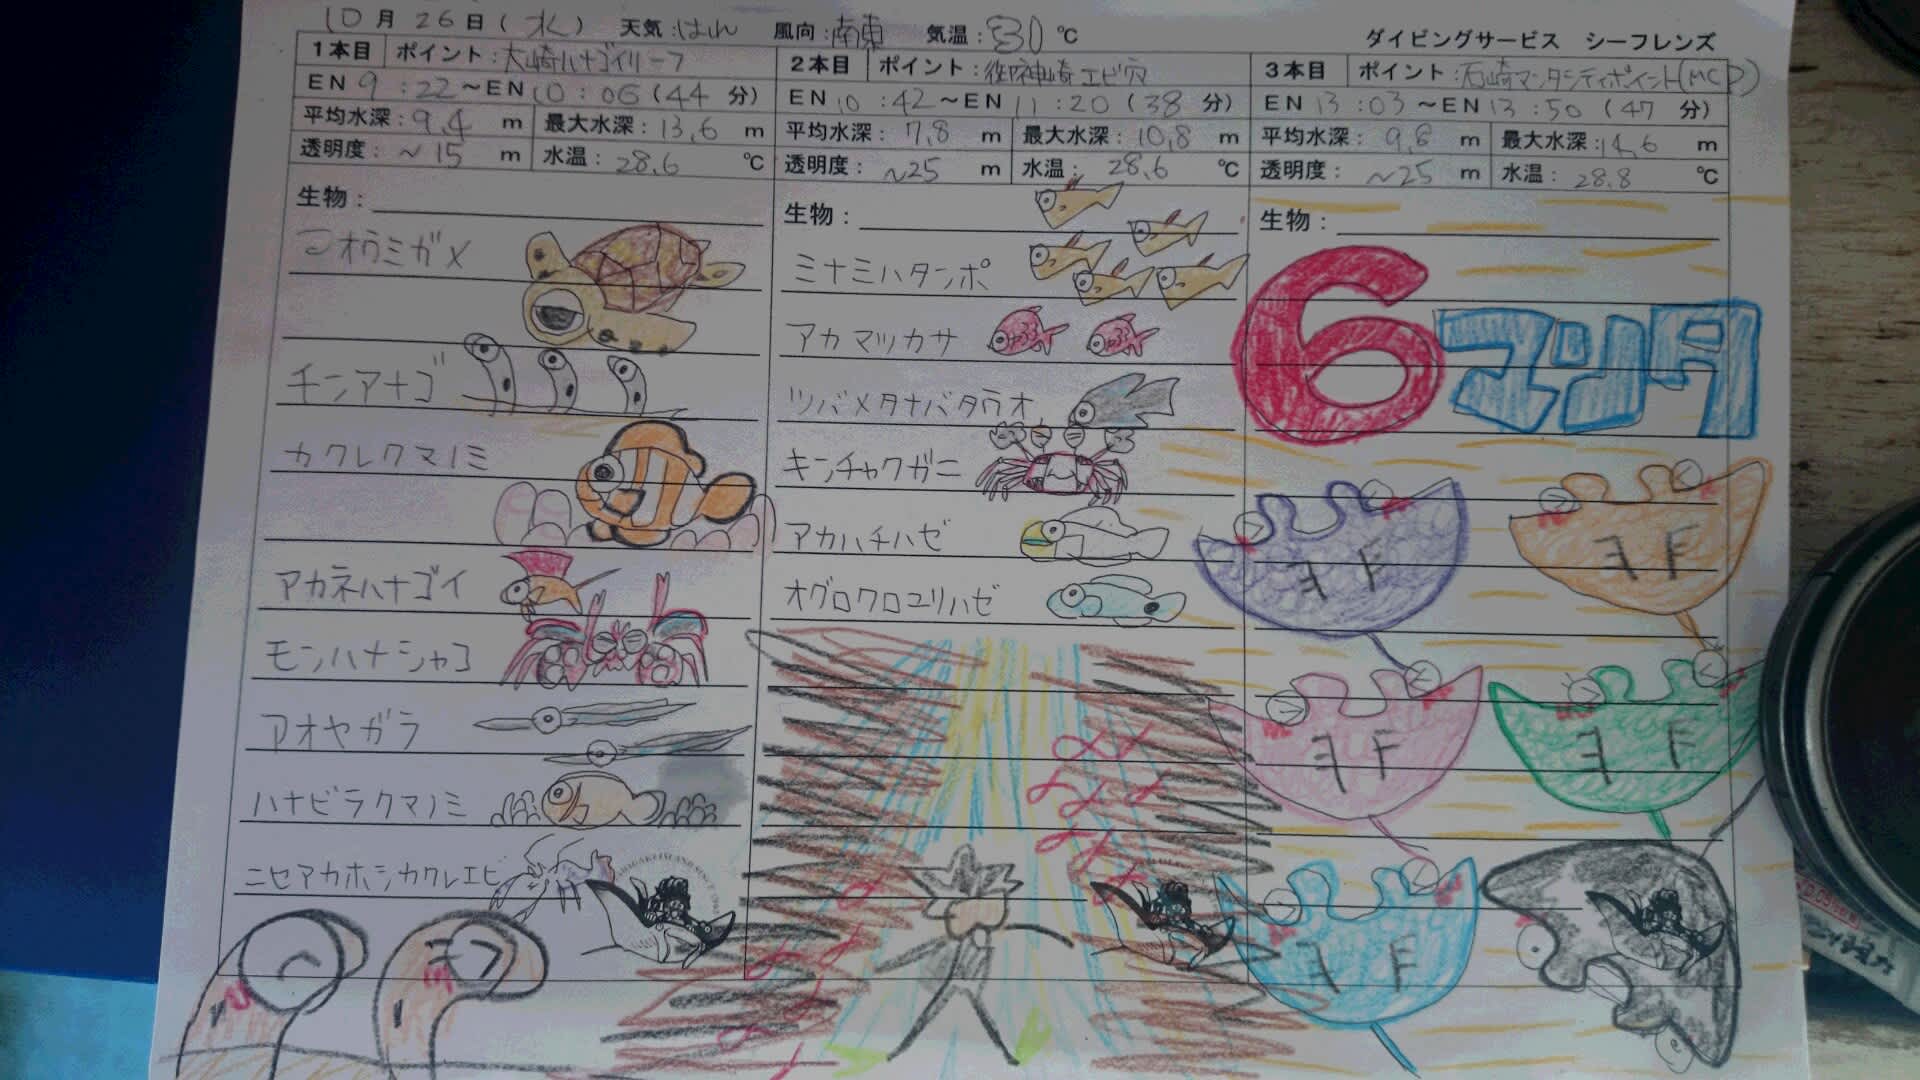 10月26日(水) 天気:はれ 風向:南東 気温:30℃
ダイビングサービス シーフレンズ
1本目 ポイント:大崎ハナゴイリーフ
EN 9:22~EN 10:06(44分)
平均水深:9.4m 最大水深:13.6m
透明度:~15m 水温:28.6℃
生物:
アオウミガメ
チンアナゴ
カクレクマノミ
アカネハナゴイ
モンハナシャコ
アオヤガラ
ハナビラクマノミ
ニセアカホシカクレエビ
2本目 ポイント:御神崎エビ穴
EN 10:42~EN 11:20(38分)
平均水深:7.8m 最大水深:10.8m
透明度:~25m 水温:28.6℃
生物:
ミナミハタンポ
アカマツカサ
ツバメタナバタウオ
キンチャクガニ
アカハチハゼ
オグロクロユリハゼ
3本目 ポイント:石崎マンタシティポイント(MCP)
EN 13:03~EN 13:50(47分)
平均水深:9.8m 最大水深:14.6m
透明度:~25m 水温:28.8℃
生物:
6マンタ